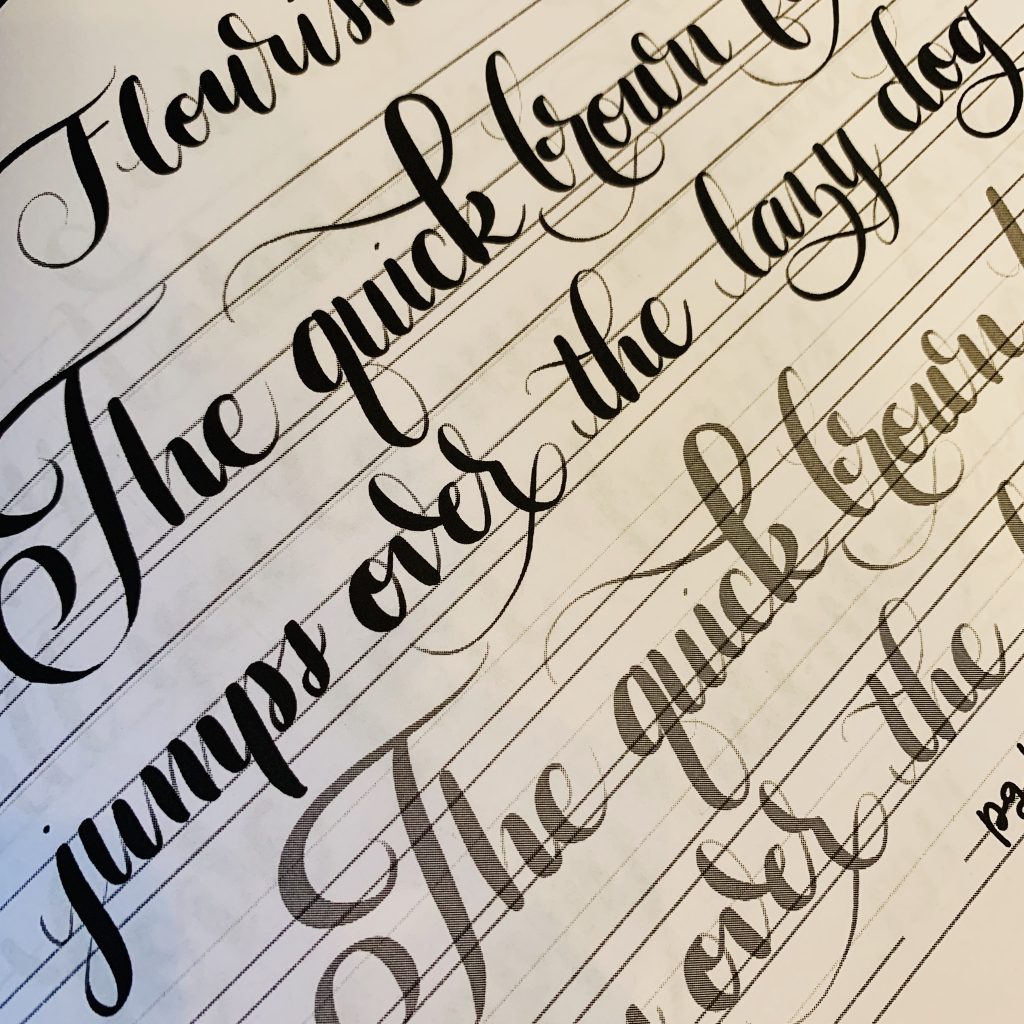 Flourish
The quick brown
jumps over the lazy dog
The quick brown
over the
pg